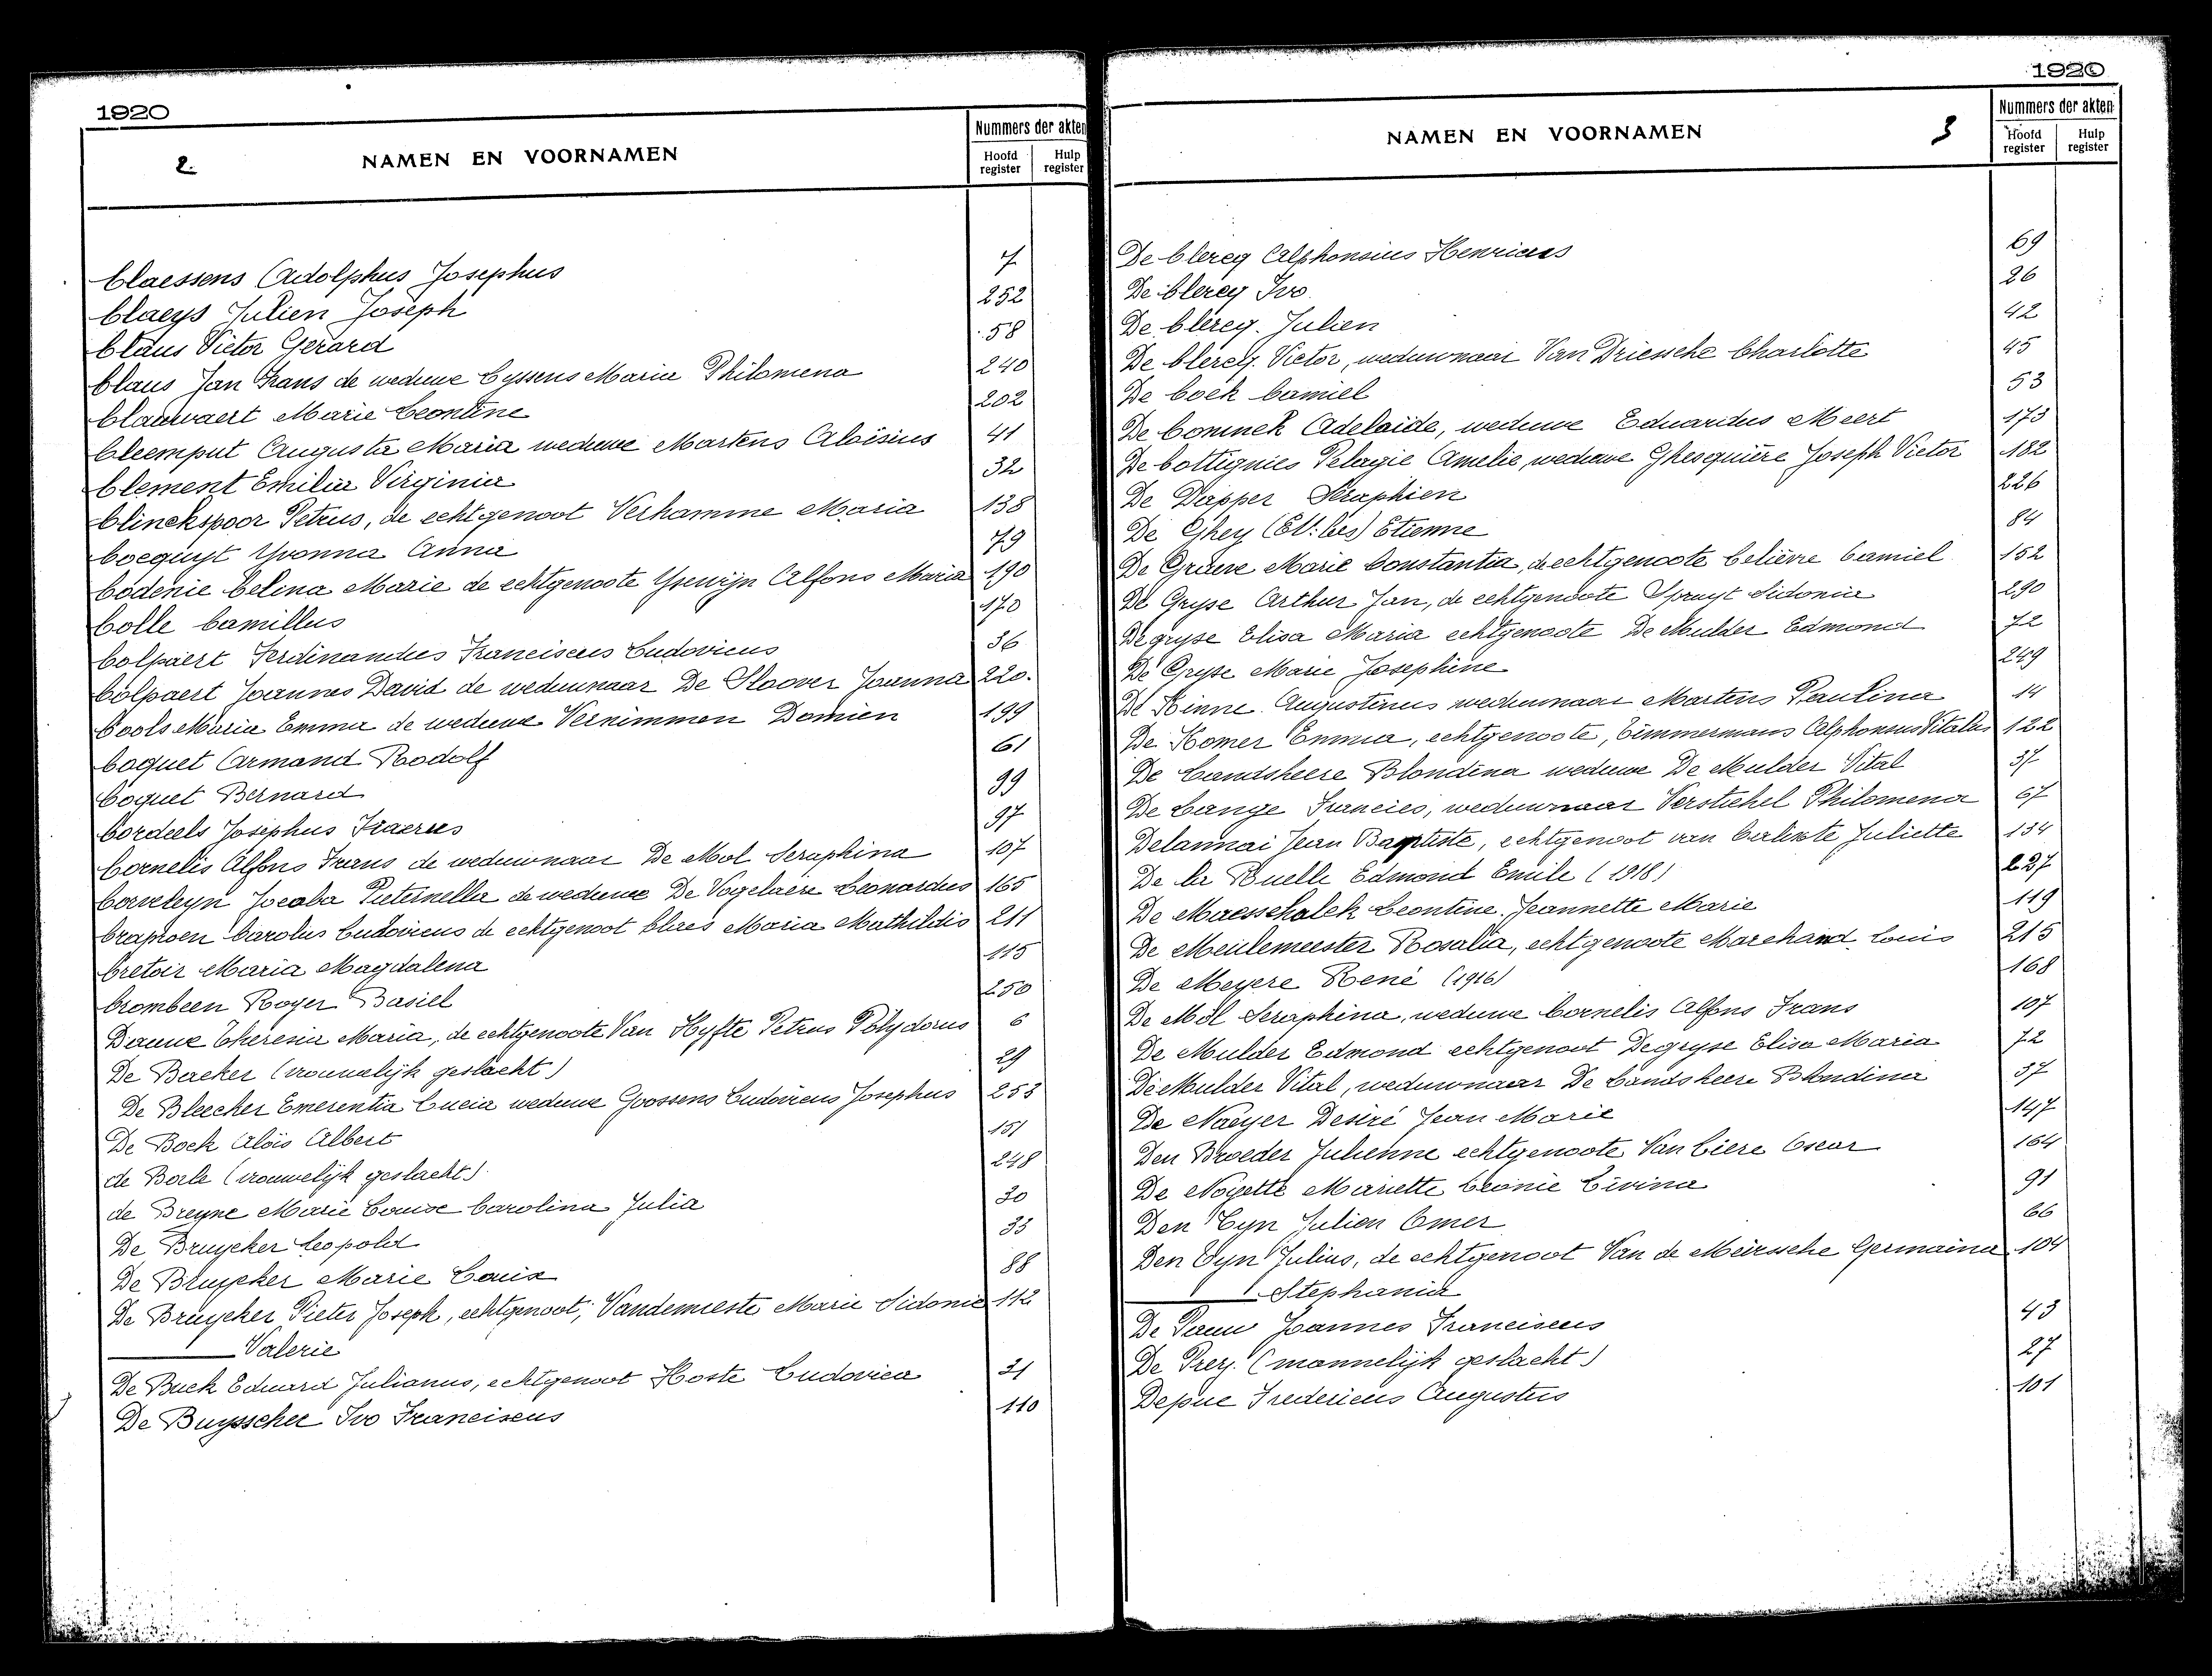 1920
2.
NAMEN EN VOORNAMEN
Nummers der akten
Hoofd register
Hulp register
Claessens Adolphus Josephus 7
Claeys Julien Joseph 252
Claus Victor Gerard 58
Claus Jan Frans de weduwe Cyssens Maria Philomena 240
Clauwaert Marie Leontine 202
Cleemput Augusta Maria weduwe Martens Aloïsius 41
Clement Emilia Virginia 32
Clinckspoor Petrus, de echtgenoot Verhamme Maria 138
Cocquyt Yvonna Anna 79
Codenie Celina Marie de echtgenoote Ysewijn Alfons Maria 190
Colle Camillus 170
Colpaert Ferdinandus Franciscus Ludovicus 36
Colpaert Joannes David de weduwnaar De Sloover Joanna 220.
Cools Maria Emma de weduwe Vernimmen Damien 199
Coquet Armand Rodolf 61
Coquet Bernard 99
Cordeels Josephus 97
Cornelis Alfons Frans de weduwnaar De Mol Seraphina 107
Jocaba Pieternella de weduwe De Vogelaere Leonardus 165
Crapoen Carolus Ludovicus de echtgenoot Claes Maria Mathildis 211
Cretoir Maria Magdalena 115
Crombeen Roger Basiel 250
Danne Theresia Maria, de echtgenoote Van Hyfte Petrus Polydorus 6
De Backer (vrouwelijk geslacht) 29
De Bleecker Emerentia Lucia weduwe Goossens Ludovicus Josephus 253
De Bock Aloïs Albert 151
de Boele (vrouwelijk geslacht) 248
de Breyne Marie Louise Carolina Julia 30
De Bruycker Leopold 35
De Bruycker Marie Louisa 88
De Bruycker Pieter Joseph, echtgenoot, Vandemieste Marie Sidonie 112
Valerie
De Buck Eduard Julianus, echtgenoot Hoste Ludovica 31
De Buysscher Ivo Franciscus 110
1920
NAMEN EN VOORNAMEN
3
Nummers der akten
Hoofd register
Hulp register
De Clercq Alphonsius Henricus 69
De Clercq Ivo. 26
De Clercq Julien 42
De Clercq Victor, weduwnaar Van Driessche Charlotte 45
De Cock Camiel 53
De Coninck Adelaïde, weduwe Eduardus Meert 173
De Cottignies Pelagie Amelie, weduwe Ghesquière Joseph Victor 182
De Dapper Seraphien 226
De Ghey Etienne 84
De Graeve Marie Constantia, de echtgenoote Celièvre Camiel 152
De Gryse Arthur Jan, de echtgenoote Spruyt Sidonia 290
Degryse Elisa Maria echtgenoote De Mulder Edmond 72
De Gryse Marie Josephine 249
De Kinne Augustinus weduwnaar Martens Paulina 14
De Komer Emma, echtgenoote, Timmermans Alphonsus Vitalus 122
De Landsheere Blondina weduwe De Mulder Vital 37
De Lange Francies, weduwnaar Verstichel Philomena 67
Delannai Jean Baptiste, echtgenoot van Juliette 134
De la Ruelle Edmond Emile (1918) 227
De Maesschalck Leontine Jeannette Marie 119
De Meulemeester Rosalia, echtgenoote Marchand Louis 215
De Meyere René (1916) 168
De Mol Seraphina, weduwe Cornelis Alfons Frans 107
De Mulder Edmond echtgenoot Degryse Elisa Maria 72
De Mulder Vital, weduwnaar De Landsheere Blondina 37
De Naeyer Desiré Jean Marie 147
Den Broeder Julienne echtgenoote Van Liere Oscar 164
De Noyette Mariette Leonie Livina 91
Den Tyn Julien Omer 66
Den Tyn Julius, de echtgenoot Van de Meirssche Germaina 104
Stephania
De Pauw Joannes Franciscus 43
De Prez. (mannelijk geslacht) 27
Depue Fredericus Augustus 101